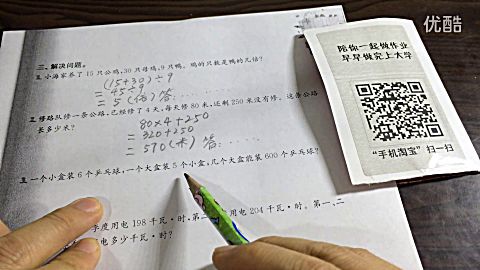 优酷
三、解决问题。
1. 小海家养了 15 只公鸡, 30 只母鸡, 9 只鸭。鸡的只数是鸭的几倍?
(15+30)÷9
=45÷9
=5(倍) 答: ......
2. 修路队修一条公路, 已经修了 4 天, 每天修 80 米, 还剩 250 米没有修。这条公路
长多少米?
80×4+250
=320+250
=570(米) 答: ......
3. 一个小盒装 6 个乒乓球, 一个大盒装 5 个小盒, 几个大盒能装 600 个乒乓球?
季度用电 198 千瓦·时, 第二 用电 204 千瓦·时。第一、二
电多少千瓦·时?
陪你一起做作业
早早做完上大学
"手机淘宝"扫一扫